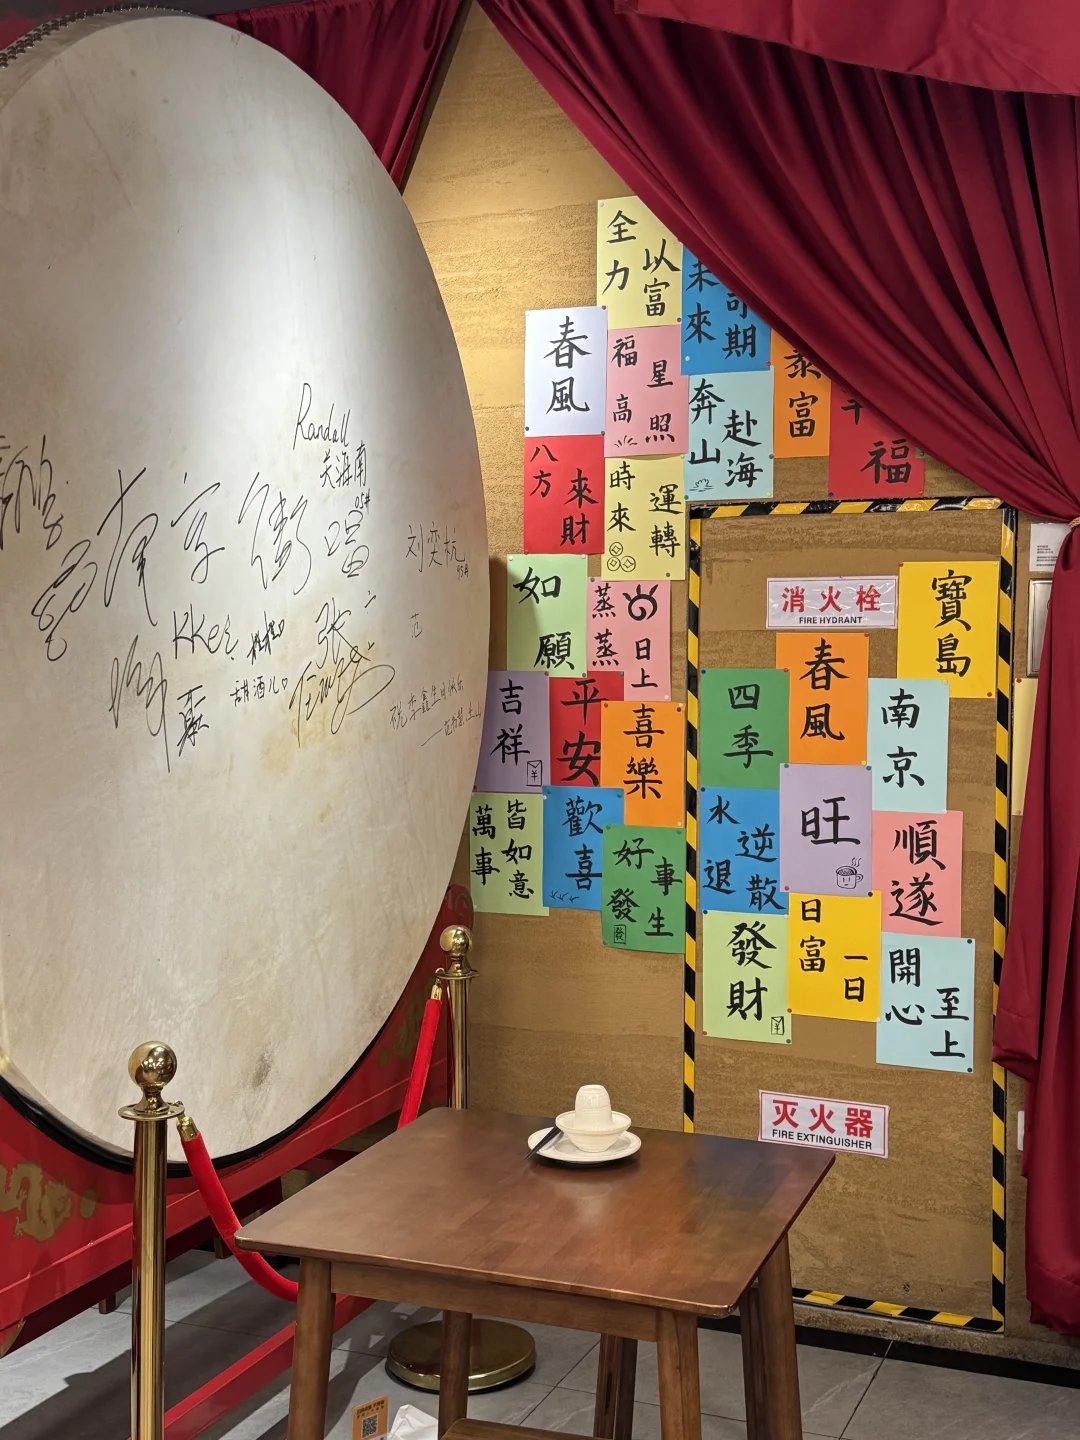 Randall
关海南
95#
刘奕杭
95#
KKec
甜酒儿
张
范
祝李鑫生日快乐
全力
以富
未來
可期
春風
福星
高照
奔山
赴海
泰富
福
八方
來財
時來
運轉
如願
蒸蒸
日上
吉祥
平安
喜樂
萬事
皆如意
歡喜
好事
發生
發
消火栓
FIRE HYDRANT
寶島
春風
四季
南京
旺
水逆
退散
順遂
發財
日富
一日
開心
至上
灭火器
FIRE EXTINGUISHER